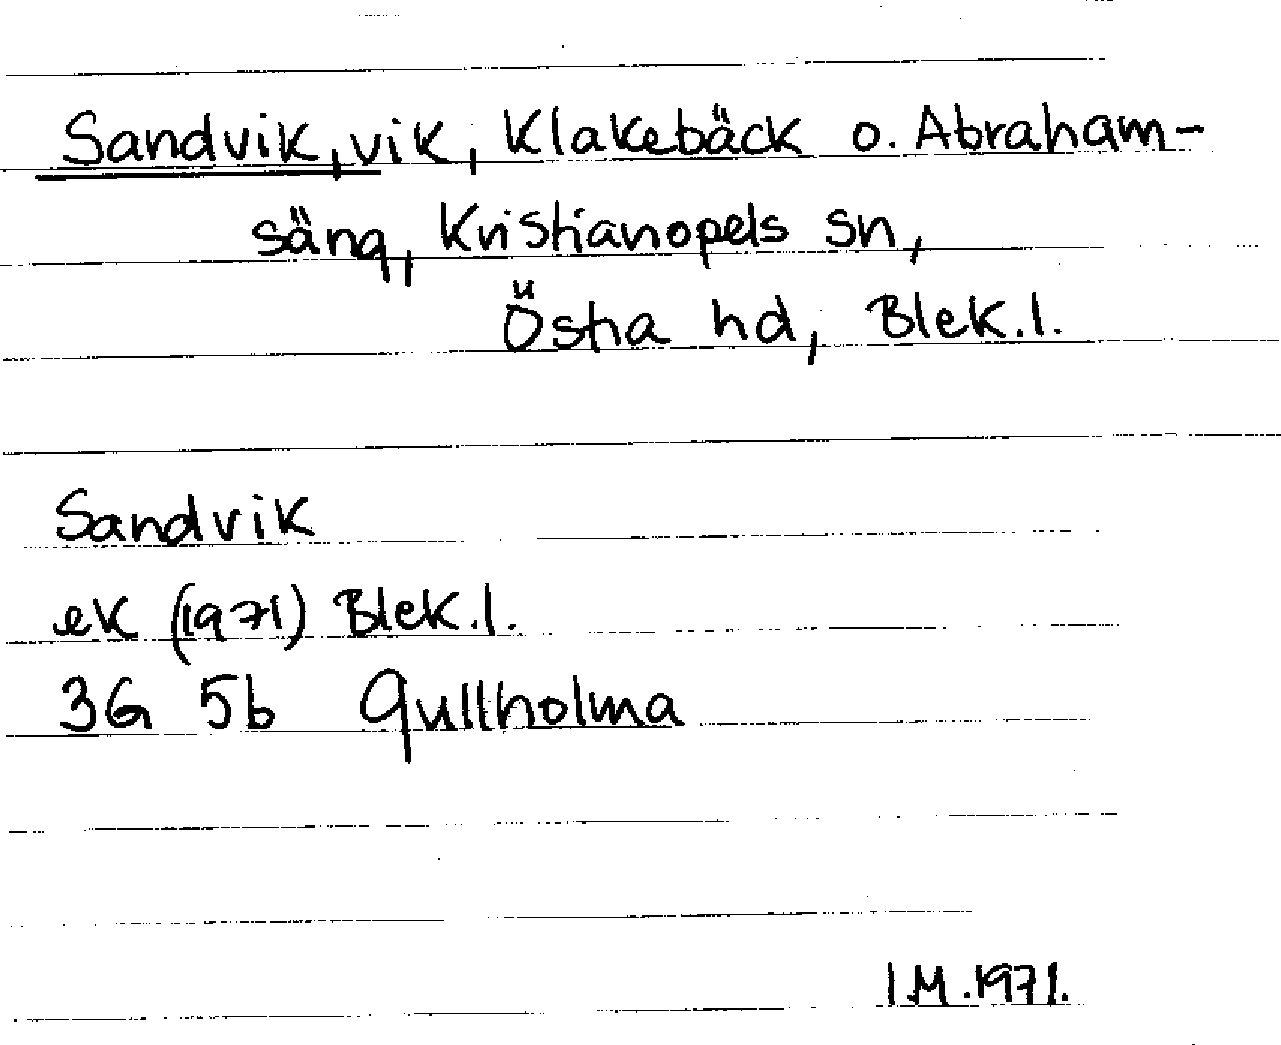 Sandvik, vik, Klakebäck o. Abraham-
säng, Kristianopels sn,
Östra hd, Blek.l.
Sandvik
ek (1971) Blek.l.
3G 5b Gullholma
I.M.1971.